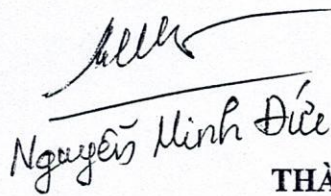 Nguyễn Minh Đức
THÀ